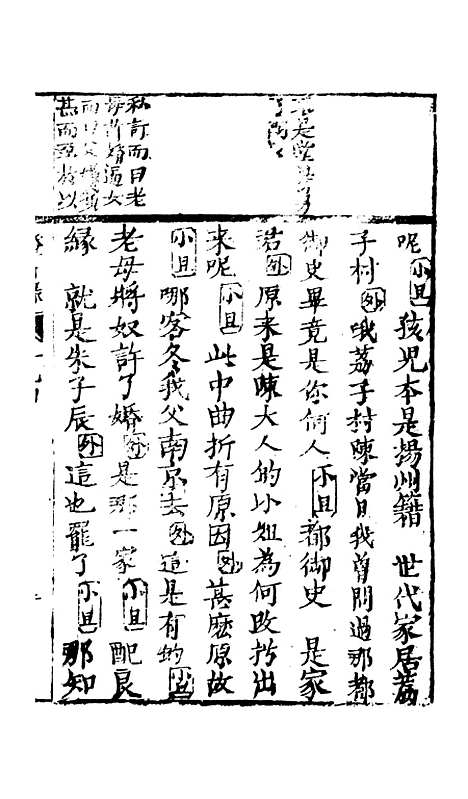 是堂
私訂而曰老
母許婚逼女
而曰父
甚而 以
呢小旦孩兒本是揚州籍　世代家居荔
子村外哦荔子村陳當日我曾問過那都
御史畢竟是你何人小旦都御史　是家
君外原来是陳大人的小姐為何改扮出
来呢　小旦　此中曲折有原因外甚麽原故
小旦　那客冬我父南京去外這是有的小旦
老母將奴許了婚外是那一家　小旦　配良
緣　就是朱子辰外這也罷了小旦　那知